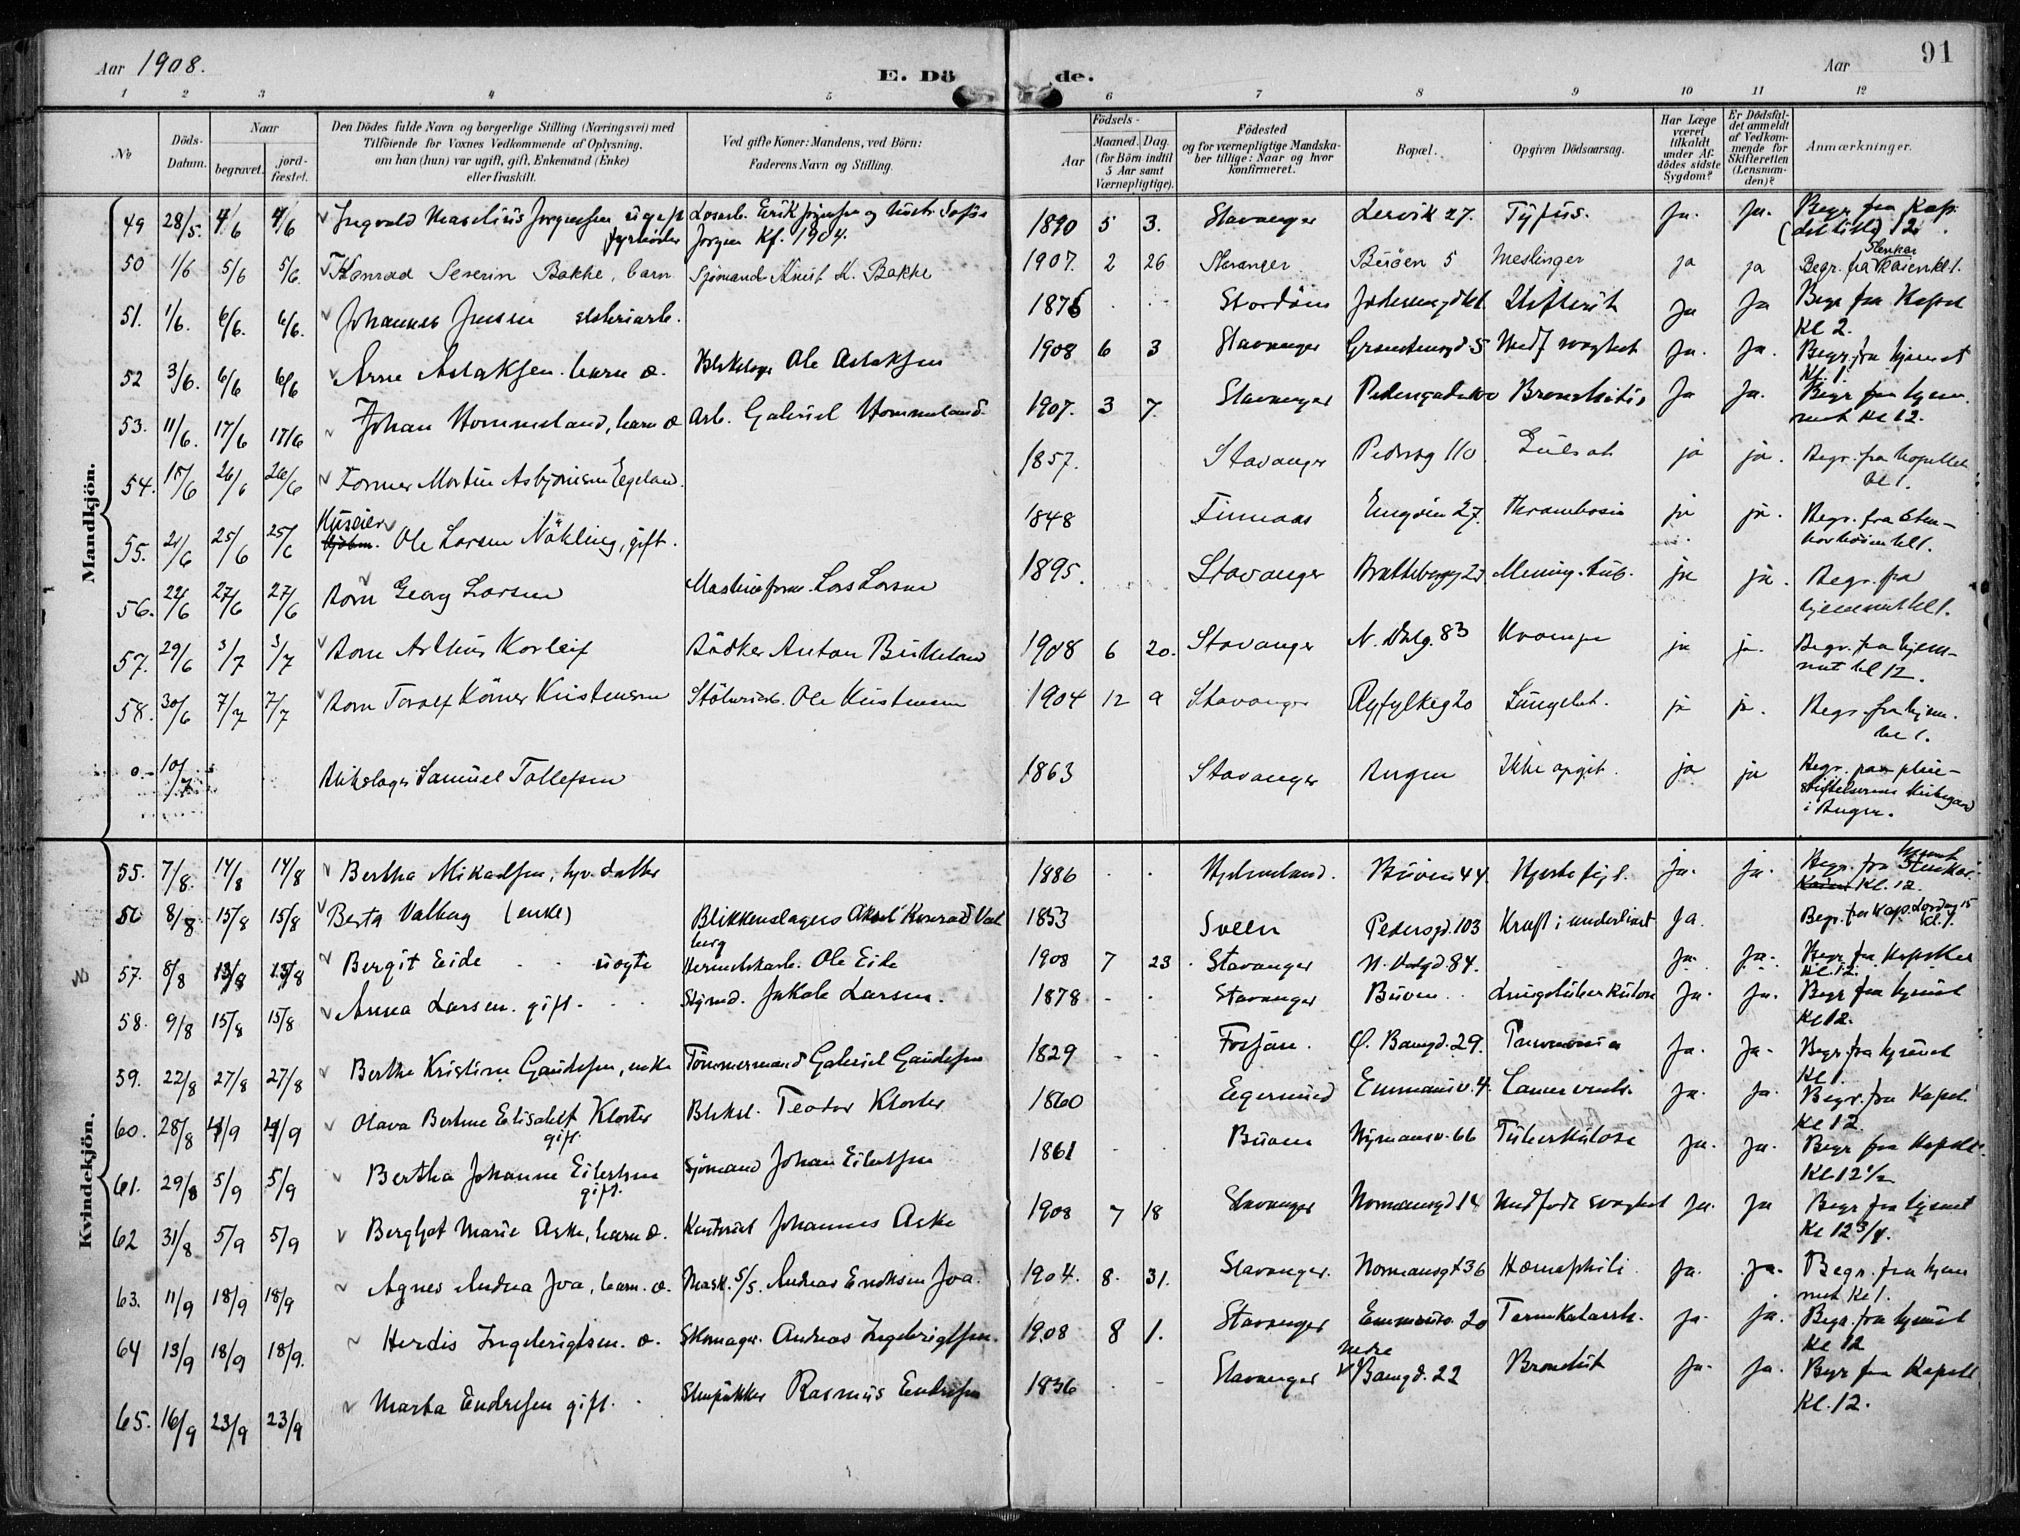 Aar 1908.
E. Dö
de.
Aar
91
1 2 3 4 5 6 7 8 9 10 11 12
No
Döds-Datum.
Naar
begravet.
jord-fæstet.
Den Dödes fulde Navn og borgerlige Stilling (Næringsvei) med
Tilföiende for Voxnes Vedkommende af Oplysning.
om han (hun) var ugift, gift, Enkemand (Enke)
eller fraskilt.
Ved gifte Koner: Mandens, ved Börn:
Faderens Navn og Stilling.
Födsels-
Aar
Maaned.
Dag
(for Börn indtil
5 Aar samt
Værnepligtige).
Födested
og for værnepligtige Mandska-
ber tillige: Naar og hvor
konfirmeret.
Bopæl.
Opgiven Dödsaarsag.
Har Læge
været
tilkaldt
under Af-
dödes sidste
Sygdom?
Er Dödsfal-
det anmeldt
af Vedkom-
mende for
Skifteretten
(Lensman-
den)?
Anmærkninger.
Mandkjön.
49 28/5. 4/6 4/6 Ingvald Maselius Jørgensen ugift Losarb. Erik Jørgensen og 1890 5 3. Stavanger Lervik 27. Tyfus. Ja. Ja. Begr. fra Kap.
fyrbøder Kf. 1904. (det lille) 12.
50 1/6 5/6 5/6. Konrad Severin Bakke, barn Sjømand Knut K. Bakke 1907. 2 26 Stavanger Buøen 5 Meslinger ja ja Begr. fra Stenkaien kl 1.
51. 1/6. 6/6. 6/6. Johannes Jensen 1876 Ja Ja Begr fra Kapel
Kl 2.
52 3/6. 6/6 6/6 Arne Aslaksen barn æ. Blikslager Ole Aslaksen 1908 6 3 Stavanger 5 Medf svaghet Ja. Ja. Begr. fra hjemmet
Kl. 1.
53. 11/6. 17/6 17/6 Johan Hommeland, barn æ Arb. Gabriel Hommeland. 1907. 3 7. Stavanger Bronchitis Ja Ja. Begr fra hjem-
met Kl 12.
54. 18/6 26/6 26/6 Former Martin Asbjørnsen Egeland. 1857. Stavanger Pedersg 110 Gulsot ja ja. Begr. fra kapellet
kl 1.
55. 21/6 25/6 25/6 Huseier Ole Larsen Nökling, gift. 1848 Finnaas Engveien 27. Thrombosis ja ja. Begr. fra
kl 1.
56. 22/6 27/6 27/6 Barn Georg Larsen Maskinform. Lars Larsen 1895. Stavanger Mening. tub. ja ja. Begr. fra
hjemmet kl 1.
57. 29/6 3/7 3/7 Barn Arthur Korleif Bödker Anton Birkeland 1908 6 20. Stavanger N. Dalg. 83 Krampe ja ja. Begr. fra hjem-
met kl 12.
58. 30/6 7/7 7/7 Barn Toralf Körner Kristensen Ole Kristensen 1904 12 9 Stavanger Ryfylkeg 20 Lungebet. ja ja. Begr. fra hjem.
kl 1.
0. 10/7 Blikslager Samuel Tollefsen 1863 Stavanger Bergen Ikke opgit. ja ja Begr. paa pleie-
stiftelsernes kirkegaard
i Bergen.
Kvindekjön.
55. 7/8. 14/8 14/8 Bertha Mikaelsen, datter 1886 Hjelmeland. Buöen 44. Hjertefejl. Ja. Ja. Begr. fra hjemmet
Kl. 12.
56 8/8 15/8 15/8 Berta Valberg (enke) Blikkenslager Aksel Konrad Val 1853 Sveen Pedersgd. 103 Kræft i underlivet Ja. Begr. fra Kap. Lørdag 15
berg Kl. 1.
57. 8/8 13/8 13/8 Bergit Eide uegte Hermetikarb. Ole Eide 1908 7 23. Stavanger N. Dalgd. 84. Ja. Ja. Begr fra Kapellet
Kl. 12.
58. 9/8 15/8 15/8 Anna Larsen. gift. Sjømd. Jakob Larsen. 1878 Stavanger Buøen Lungetuberkulose Ja. Ja. Begr fra hjemmet
Kl 12.
59. 22/8 27/8 27/8 Berthe Kristine Gaudesen, enke Tömmermand Gabriel Gaudesen 1829 Fosjan. Ø. Bangd. 29. Pneumonia Ja. Ja. Begr. fra hjemmet
Kl 1.
60. 28/8 4/9 4/9 Olava Bertine Elisabeth Kloster Bliksl. Teodor Kloster 1860 Egersund Emmausv. 4. Cancer ventr. Ja. Ja. Begr. fra Kapel.
gift. Kl 12.
61. 29/8 5/9 5/9 Bertha Johanne Eilertsen Sjömand Johan Eilertsen 1861 Buøen 66 Tuberkulose Ja. Ja. Begr fra Kapellet
gift. Kl 12 1/2
62 31/8 5/9 5/9 Bergljot Marie Aske, barn æ. Kontorist Johannes Aske 1908 7 18 Stavanger Normansgd 14 Medfödt svaghet Ja. Ja Begr fra hjemmet
Kl 12 3/4.
63. 11/9 18/9 18/9 Agnes Andrea Joa, barn. æ. Mask. s/s. Andreas Eriksen Joa. 1904. 8. 31. Stavanger. Normansgt 36 Hæmophili. Ja. Ja. Begr. fra hjem
met Kl 1.
64 13/9 18/9 18/9. Herdis Ingebrigtsen. æ. Skomager. Andreas Ingebrigtsen. 1908 8 1. Stavanger Emmausv. 20 Tarmkatarrh. Ja. Ja. Begr. fra hjemmet
Kl 12
65. 16/9 23/9 23/9 Marta Endresen gift. Rasmus Endresen 1836 Stavanger nedre Bangd. 22 Bronchit Ja. Ja. Begr fra Kapell
Kl. 12.